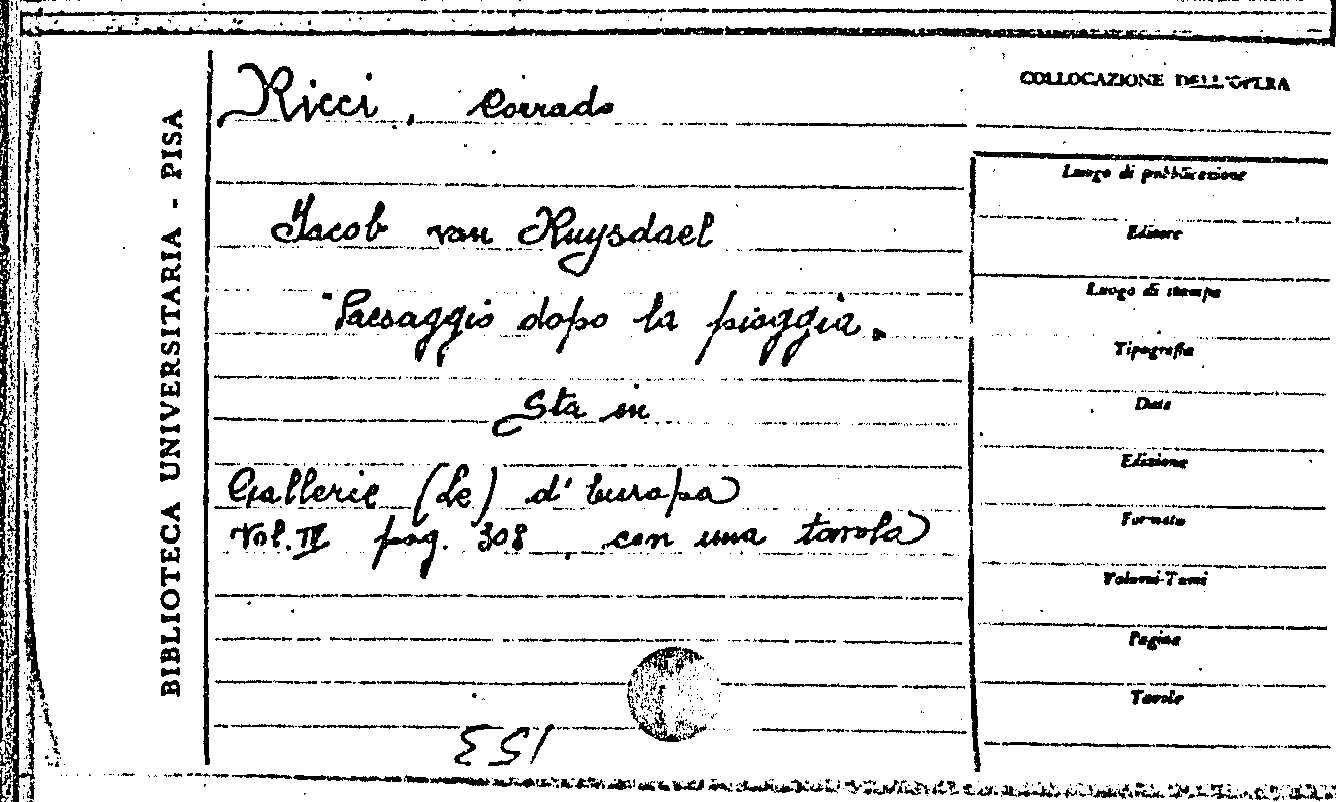 BIBLIOTECA UNIVERSITARIA - PISA
Ricci, Corrado
Jacob van Ruysdael
"Paesaggio dopo la pioggia"
Sta in
Gallerie (Le) d'Europa
Vol. IV pag. 308, con una tavola
153
COLLOCAZIONE DELL'OPERA
Luogo di pubblicazione
Editore
Luogo di stampa
Tipografia
Data
Edizione
Formato
Volumi-Tomi
Pagine
Tavole